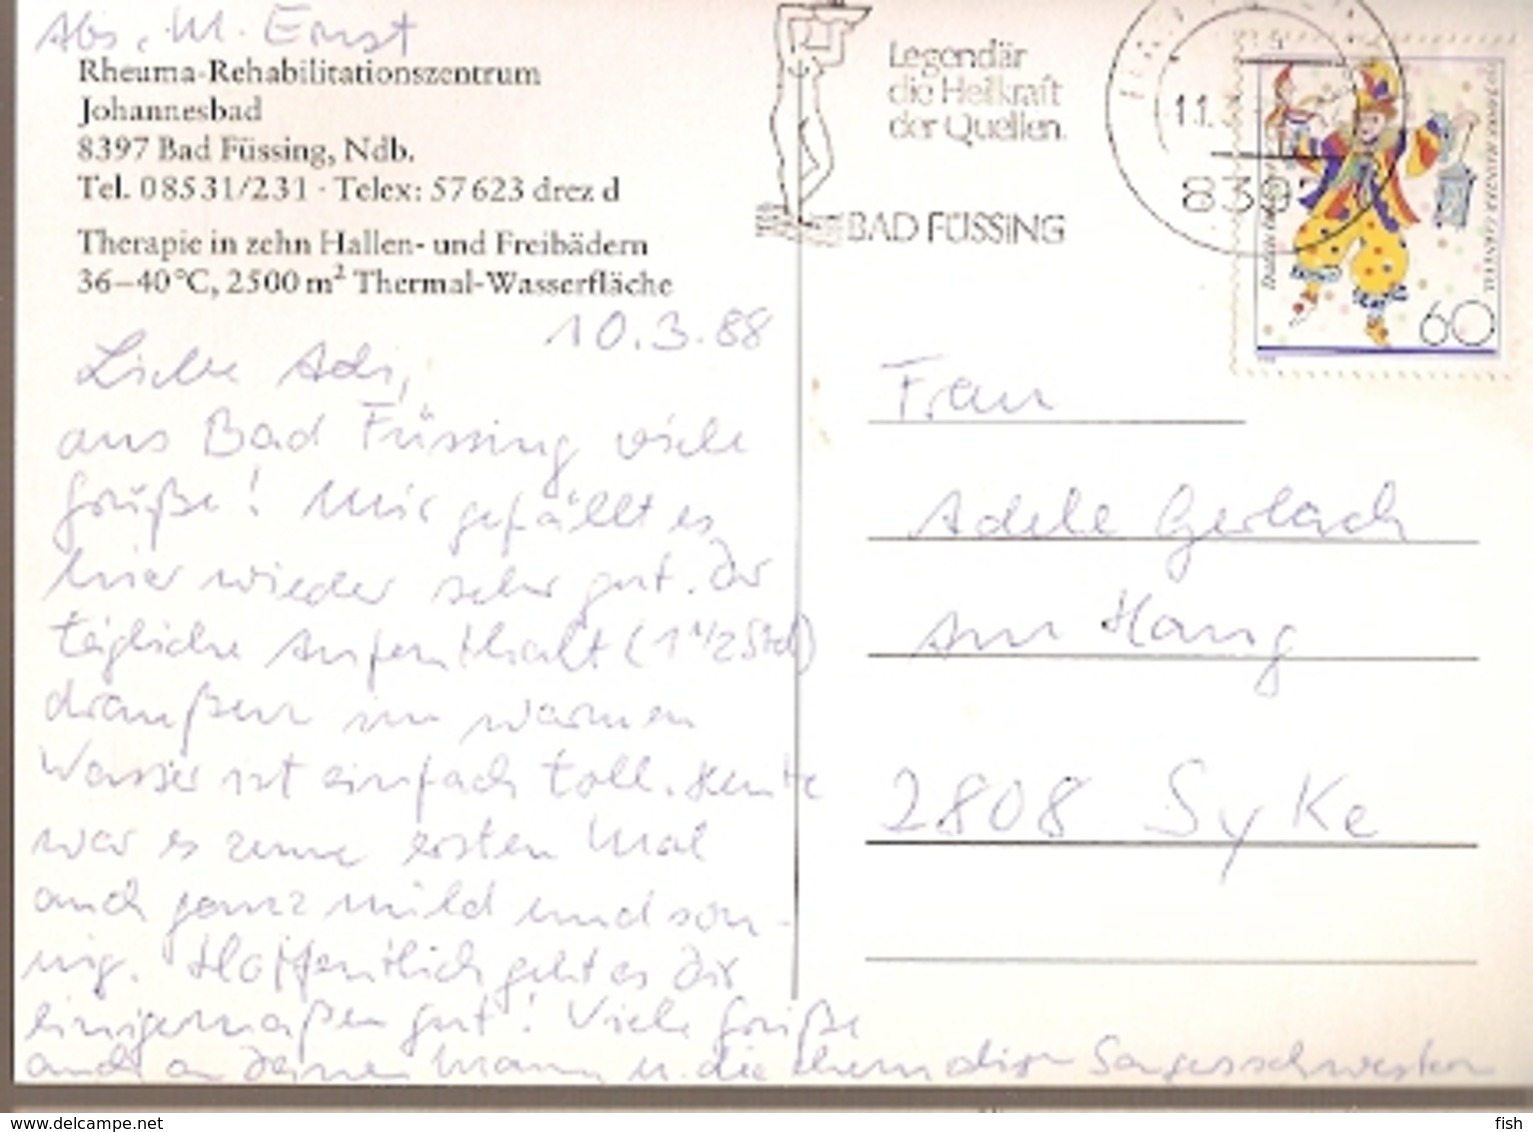 Abs. M. Ernst
Rheuma-Rehabilitationszentrum
Johannesbad
8397 Bad Füssing, Ndb.
Tel. 08531/231 · Telex: 57623 drez d
Therapie in zehn Hallen- und Freibädern
36–40°C, 2500 m² Thermal-Wasserfläche
10.3.88
Liebe Adi,
aus Bad Füssing viele
Grüße! Mir gefällt es
hier wieder sehr gut. Der
tägliche Aufenthalt (1 1/2 Std)
draußen im warmen
Wasser ist einfach toll. Heute
war es zum ersten Mal
auch ganz mild und son-
nig. Hoffentlich geht es Dir
einigermaßen gut! Viele Grüße
auch an Deinen Mann u. die Sangesschwestern
Legendär
die Heilkraft
der Quellen.
BAD FÜSSING
11.3
839
60
Frau
Adele Gerlach
Am Hang
2808 Syke
www.delcampe.net
fish